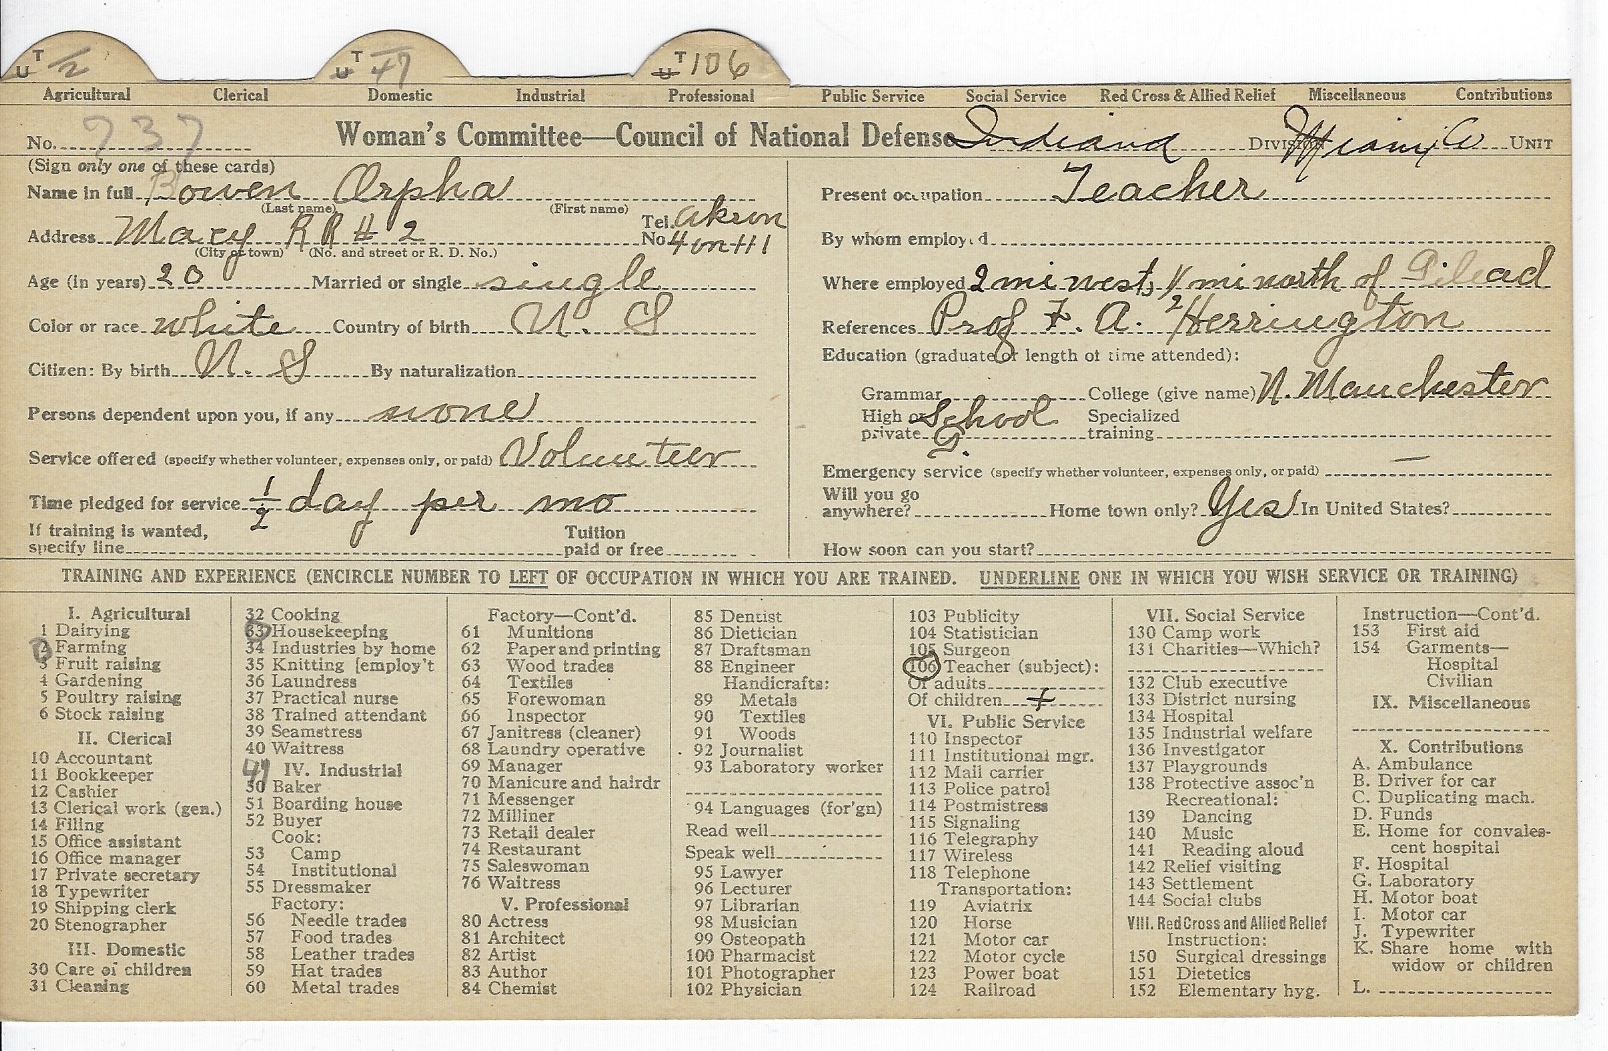 T U 2 T U 47 T U 106
Agricultural Clerical Domestic Industrial Professional Public Service Social Service Red Cross & Allied Relief Miscellaneous Contributions
No. 737 Woman's Committee—Council of National Defense Indiana Division Miami Co Unit
(Sign only one of these cards)
Name in full Bowen Orpha
(Last name) (First name)
Address Macy R R # 2 Tel. No. Akron 4 on 111
(City or town) (No. and street or R. D. No.)
Age (in years) 20 Married or single single
Color or race white Country of birth U. S
Citizen: By birth U. S By naturalization
Persons dependent upon you, if any none
Service offered (specify whether volunteer, expenses only, or paid) Volunteer
Time pledged for service 1/2 day per mo
If training is wanted, specify line Tuition paid or free
Present occupation Teacher
By whom employed
Where employed 2 mi west, 1/2 mi north of Gilead
References Prof F. A. Herrington
Education (graduate or length of time attended):
Grammar College (give name) N. Manchester
High or private School G. Specialized training
Emergency service (specify whether volunteer, expenses only, or paid) —
Will you go anywhere? Home town only? Yes In United States?
How soon can you start?
TRAINING AND EXPERIENCE (ENCIRCLE NUMBER TO LEFT OF OCCUPATION IN WHICH YOU ARE TRAINED. UNDERLINE ONE IN WHICH YOU WISH SERVICE OR TRAINING)
I. Agricultural
1 Dairying
2 Farming
3 Fruit raising
4 Gardening
5 Poultry raising
6 Stock raising
II. Clerical
10 Accountant
11 Bookkeeper
12 Cashier
13 Clerical work (gen.)
14 Filing
15 Office assistant
16 Office manager
17 Private secretary
18 Typewriter
19 Shipping clerk
20 Stenographer
III. Domestic
30 Care of children
31 Cleaning
32 Cooking
33 Housekeeping
34 Industries by home
35 Knitting [employ't
36 Laundress
37 Practical nurse
38 Trained attendant
39 Seamstress
40 Waitress
47 IV. Industrial
50 Baker
51 Boarding house
52 Buyer
Cook:
53 Camp
54 Institutional
55 Dressmaker
Factory:
56 Needle trades
57 Food trades
58 Leather trades
59 Hat trades
60 Metal trades
Factory—Cont'd.
61 Munitions
62 Paper and printing
63 Wood trades
64 Textiles
65 Forewoman
66 Inspector
67 Janitress (cleaner)
68 Laundry operative
69 Manager
70 Manicure and hairdr
71 Messenger
72 Milliner
73 Retail dealer
74 Restaurant
75 Saleswoman
76 Waitress
V. Professional
80 Actress
81 Architect
82 Artist
83 Author
84 Chemist
85 Dentist
86 Dietician
87 Draftsman
88 Engineer
Handicrafts:
89 Metals
90 Textiles
91 Woods
92 Journalist
93 Laboratory worker
94 Languages (for'gn)
Read well
Speak well
95 Lawyer
96 Lecturer
97 Librarian
98 Musician
99 Osteopath
100 Pharmacist
101 Photographer
102 Physician
103 Publicity
104 Statistician
105 Surgeon
106 Teacher (subject):
Of adults
Of children +
VI. Public Service
110 Inspector
111 Institutional mgr.
112 Mail carrier
113 Police patrol
114 Postmistress
115 Signaling
116 Telegraphy
117 Wireless
118 Telephone
Transportation:
119 Aviatrix
120 Horse
121 Motor car
122 Motor cycle
123 Power boat
124 Railroad
VII. Social Service
130 Camp work
131 Charities—Which?
132 Club executive
133 District nursing
134 Hospital
135 Industrial welfare
136 Investigator
137 Playgrounds
138 Protective assoc'n
Recreational:
139 Dancing
140 Music
141 Reading aloud
142 Relief visiting
143 Settlement
144 Social clubs
VIII. Red Cross and Allied Relief
Instruction:
150 Surgical dressings
151 Dietetics
152 Elementary hyg.
Instruction—Cont'd.
153 First aid
154 Garments—
Hospital
Civilian
IX. Miscellaneous
X. Contributions
A. Ambulance
B. Driver for car
C. Duplicating mach.
D. Funds
E. Home for convales-
cent hospital
F. Hospital
G. Laboratory
H. Motor boat
I. Motor car
J. Typewriter
K. Share home with
widow or children
L.